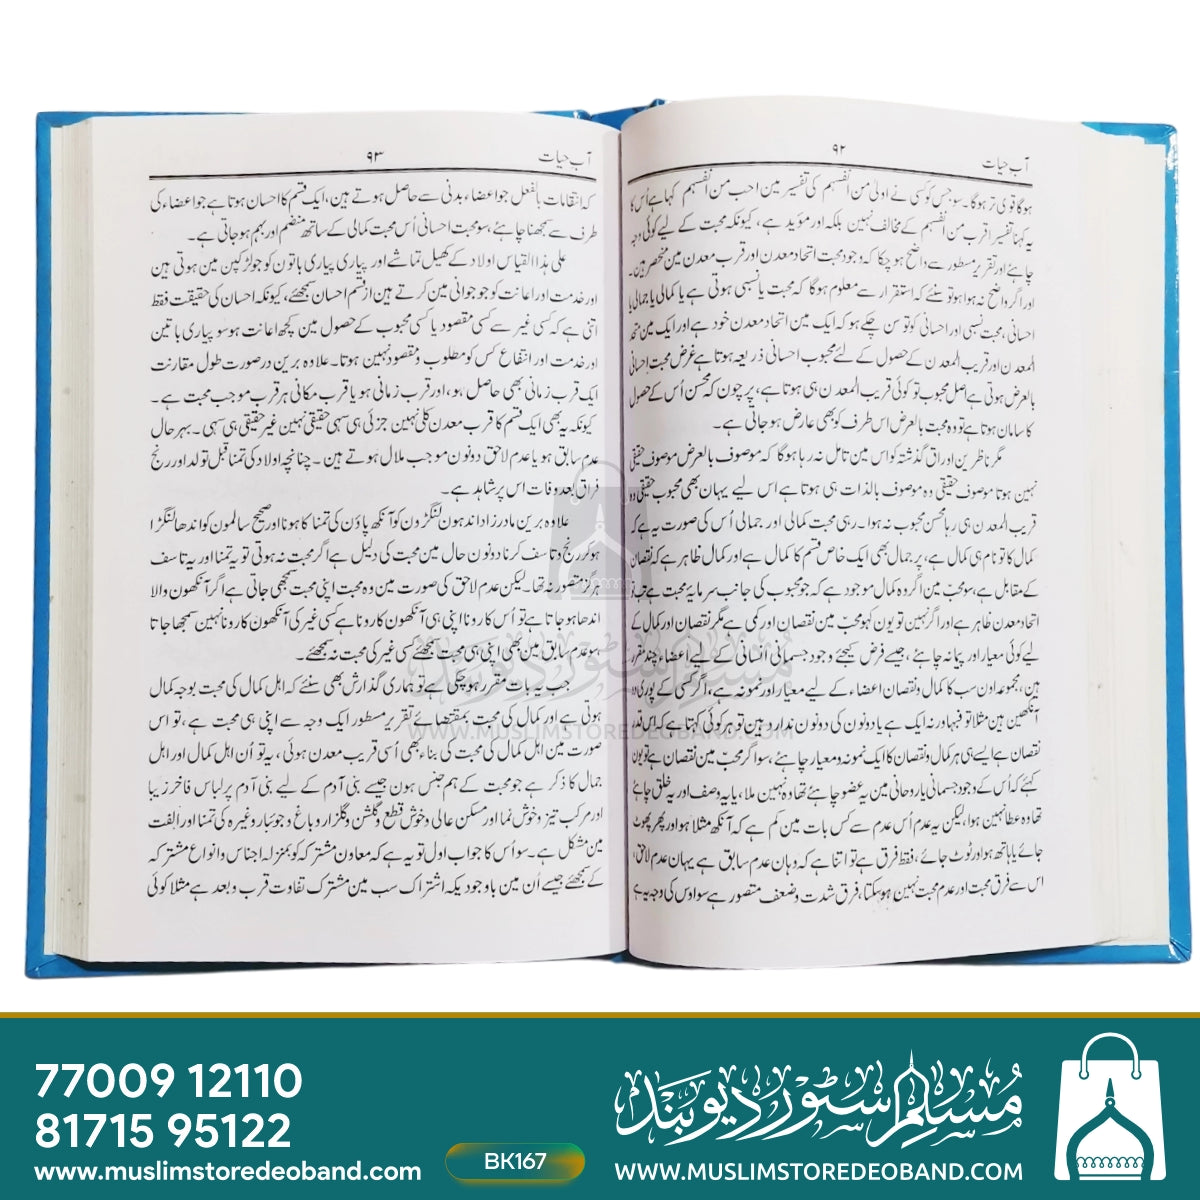 آب حیات ۹۲
ہوگا قوی تر ہوگا۔ سو جس کوکسی نے اولیٰ من انفسہم کی تفسیر مین احب من انفسہم کہا ہے اُس کا
یہ کہنا تفسیر اقرب من انفسہم کے مخالف نہین بلکہ اور مؤید ہے، کیونکہ محبت کے لیے کوئی وجہ
چاہئے اور تقریر مسطور سے واضح ہوچکا کہ وجود محبت اتحاد معدن اور قرب معدن مین منحصر ہین۔
اور اگر واضح نہ ہوا ہو تو سنئے کہ استقرار سے معلوم ہوگا کہ محبت یا نسبی ہوتی ہے یا کمالی یا جمالی یا
احسانی، محبت نسبی اور احسانی کو تو سن چکے ہو کہ ایک مین اتحاد معدن خود ہے اور ایک مین متحد
المعدن اور قریب المعدن کے حصول کے لئے محبوب احسانی ذریعہ ہوتا ہے غرض محبت احسانی
بالعرض ہوتی ہے اصل محبوب تو کوئی قریب المعدن ہی ہوتا ہے، پر چون کہ محسن اُس کے حصول
کا سامان ہوتا ہے تو وہ محبت بالعرض اس طرف کو بھی عارض ہوجاتی ہے۔
مگر ناظرین اوراق گذشتہ کو اس مین تامل نہ رہا ہوگا کہ موصوف بالعرض موصوف حقیقی
نہین ہوتا موصوف حقیقی وہ موصوف بالذات ہی ہوتا ہے اس لیے یہان بھی محبوب حقیقی وہ
قریب المعدن ہی رہا محسن محبوب نہ ہوا۔ رہی محبت کمالی اور جمالی اُس کی صورت یہ ہے کہ
کمال کا تو نام ہی کمال ہے، پر جمال بھی ایک خاص قسم کا کمال ہے اور کمال ظاہر ہے کہ نقصان
کے مقابل ہے، سو محب مین اگر وہ کمال موجود ہے کہ جو محبوب کی جانب سرمایۂ محبت ہے تب تو
اتحاد معدن ظاہر ہے اور اگر نہین تو یون کہو محب مین نقصان اور کمی ہے مگر نقصان اور کمال کے
لیے کوئی معیار اور پیمانہ چاہئے، جیسے فرض کیجئے وجود جسمانی انسانی کے لیے اعضاء چند مقرر
ہین، مجموعہ اون سب کا کمال و نقصان اعضاء کے لیے معیار اور نمونہ ہے، اگر کسی کے پوری دو
آنکھین ہین مثلا تو فبہا ورنہ ایک ہے یا دونون کی دونون ندارد ہین تو ہر کوئی کہتا ہے کہ اس قدر
نقصان ہے ایسے ہی ہر کمال و نقصان کا ایک نمونہ و معیار چاہئے، سو اگر محب مین نقصان ہے تو یون
کہئے کہ اُس کے وجود جسمانی یا روحانی مین یہ عضو چاہئے تھا وہ نہین ملا، یا یہ وصف اور یہ خلق چاہئے
تھا وہ عطا نہین ہوا، لیکن یہ عدم اُس عدم سے کس بات مین کم ہے کہ آنکھ مثلا ہو اور پھر پھوٹ
جائے یا ہاتھ ہو اور ٹوٹ جائے، فقط فرق ہے تو اتنا ہے کہ وہان عدم سابق ہے یہان عدم لاحق،
اس سے فرق محبت اور عدم محبت نہین ہوسکتا، فرق شدت و ضعف متصور ہے سو اوس کی وجہ یہ ہے
آب حیات ۹۳
کہ انتقامات بالفعل جو اعضاء بدنی سے حاصل ہوتے ہین، ایک قسم کا احسان ہوتا ہے جو اعضاء کی
طرف سے سمجھنا چاہئے، سو محبت احسانی اُس محبت کمالی کے ساتھ منضم اور بہم ہوجاتی ہے۔
علی ہذا القیاس اولاد کے کھیل تماشے اور پیاری پیاری باتون کو جو لڑکپن مین ہوتی ہین
اور خدمت اور اعانت کو جو جوانی مین کرتے ہین از قسم احسان سمجھئے، کیونکہ احسان کی حقیقت فقط
اتنی ہے کہ کسی غیر سے کسی مقصود یا کسی محبوب کے حصول مین کچھ اعانت ہو سو پیاری باتین
اور خدمت اور انتفاع کس کو مطلوب و مقصود نہین ہوتا۔ علاوہ برین درصورت طول مقارنت
ایک قرب زمانی بھی حاصل ہو، اور قرب زمانی ہو یا قرب مکانی ہر قرب موجب محبت ہے۔
کیونکہ یہ بھی ایک قسم کا قرب معدن کلی نہین جزئی ہی سہی حقیقی نہین غیر حقیقی ہی سہی۔ بہر حال
عدم سابق ہو یا عدم لاحق دونون موجب ملال ہوتے ہین۔ چنانچہ اولاد کی تمنا قبل تولد اور رنج
فراق بعد وفات اس پر شاہد ہے۔
علاوہ برین مادر زاد اندہون لنگڑون کو آنکھ پاؤن کی تمنا کا ہونا اور صحیح سالمون کو اندھا لنگڑا
ہوکر رنج و تاسف کرنا دونون حال مین محبت کی دلیل ہے اگر محبت نہ ہوتی تو یہ تمنا اور یہ تاسف
ہرگز متصور نہ تھا۔ لیکن عدم لاحق کی صورت مین وہ محبت اپنی محبت سمجھی جاتی ہے اگر آنکھون والا
اندھا ہوجاتا ہے تو اُس کا رونا اپنی ہی آنکھون کا رونا ہے کسی غیر کی آنکھون کا رونا نہین سمجھا جاتا
سو عدم سابق مین بھی اپنی ہی محبت سمجھئے کسی غیر کی محبت نہ سمجھئے۔
جب یہ بات مقرر ہوچکی ہے تو ہماری گذارش بھی سنئے کہ اہل کمال کی محبت بوجہ کمال
ہوتی ہے اور کمال کی محبت بمقتضائے تقریر مسطور ایک وجہ سے اپنی ہی محبت ہے، تو اس
صورت مین اہل کمال کی محبت کی بناء بھی اُسی قریب معدن ہوئی، یہ تو اُن اہل کمال اور اہل
جمال کا ذکر ہے جو محبت کے ہم جنس ہون جیسے بنی آدم کے لیے بنی آدم پر لباس فاخر زیبا
اور مرکب تیز و خوش نما اور مسکن عالی و خوش قطع و گلشن و گلزار و باغ و جوئبار وغیرہ کی تمنا اور الفت
مین مشکل ہے۔ سو اُس کا جواب اول تو یہ ہے کہ معاون مشترکہ کو بمنزلہ اجناس و انواع مشترکہ
کے سمجھئے جیسے اُن مین باوجودیکہ اشتراک سب مین مشترک تفاوت قرب و بعد ہے مثلا کوئی
مسلم سٹور دیوبند
WWW.MUSLIMSTOREDEOBAND.COM
77009 12110
81715 95122
www.muslimstoredeoband.com
BK167
مسلم سٹور دیوبند
WWW.MUSLIMSTOREDEOBAND.COM